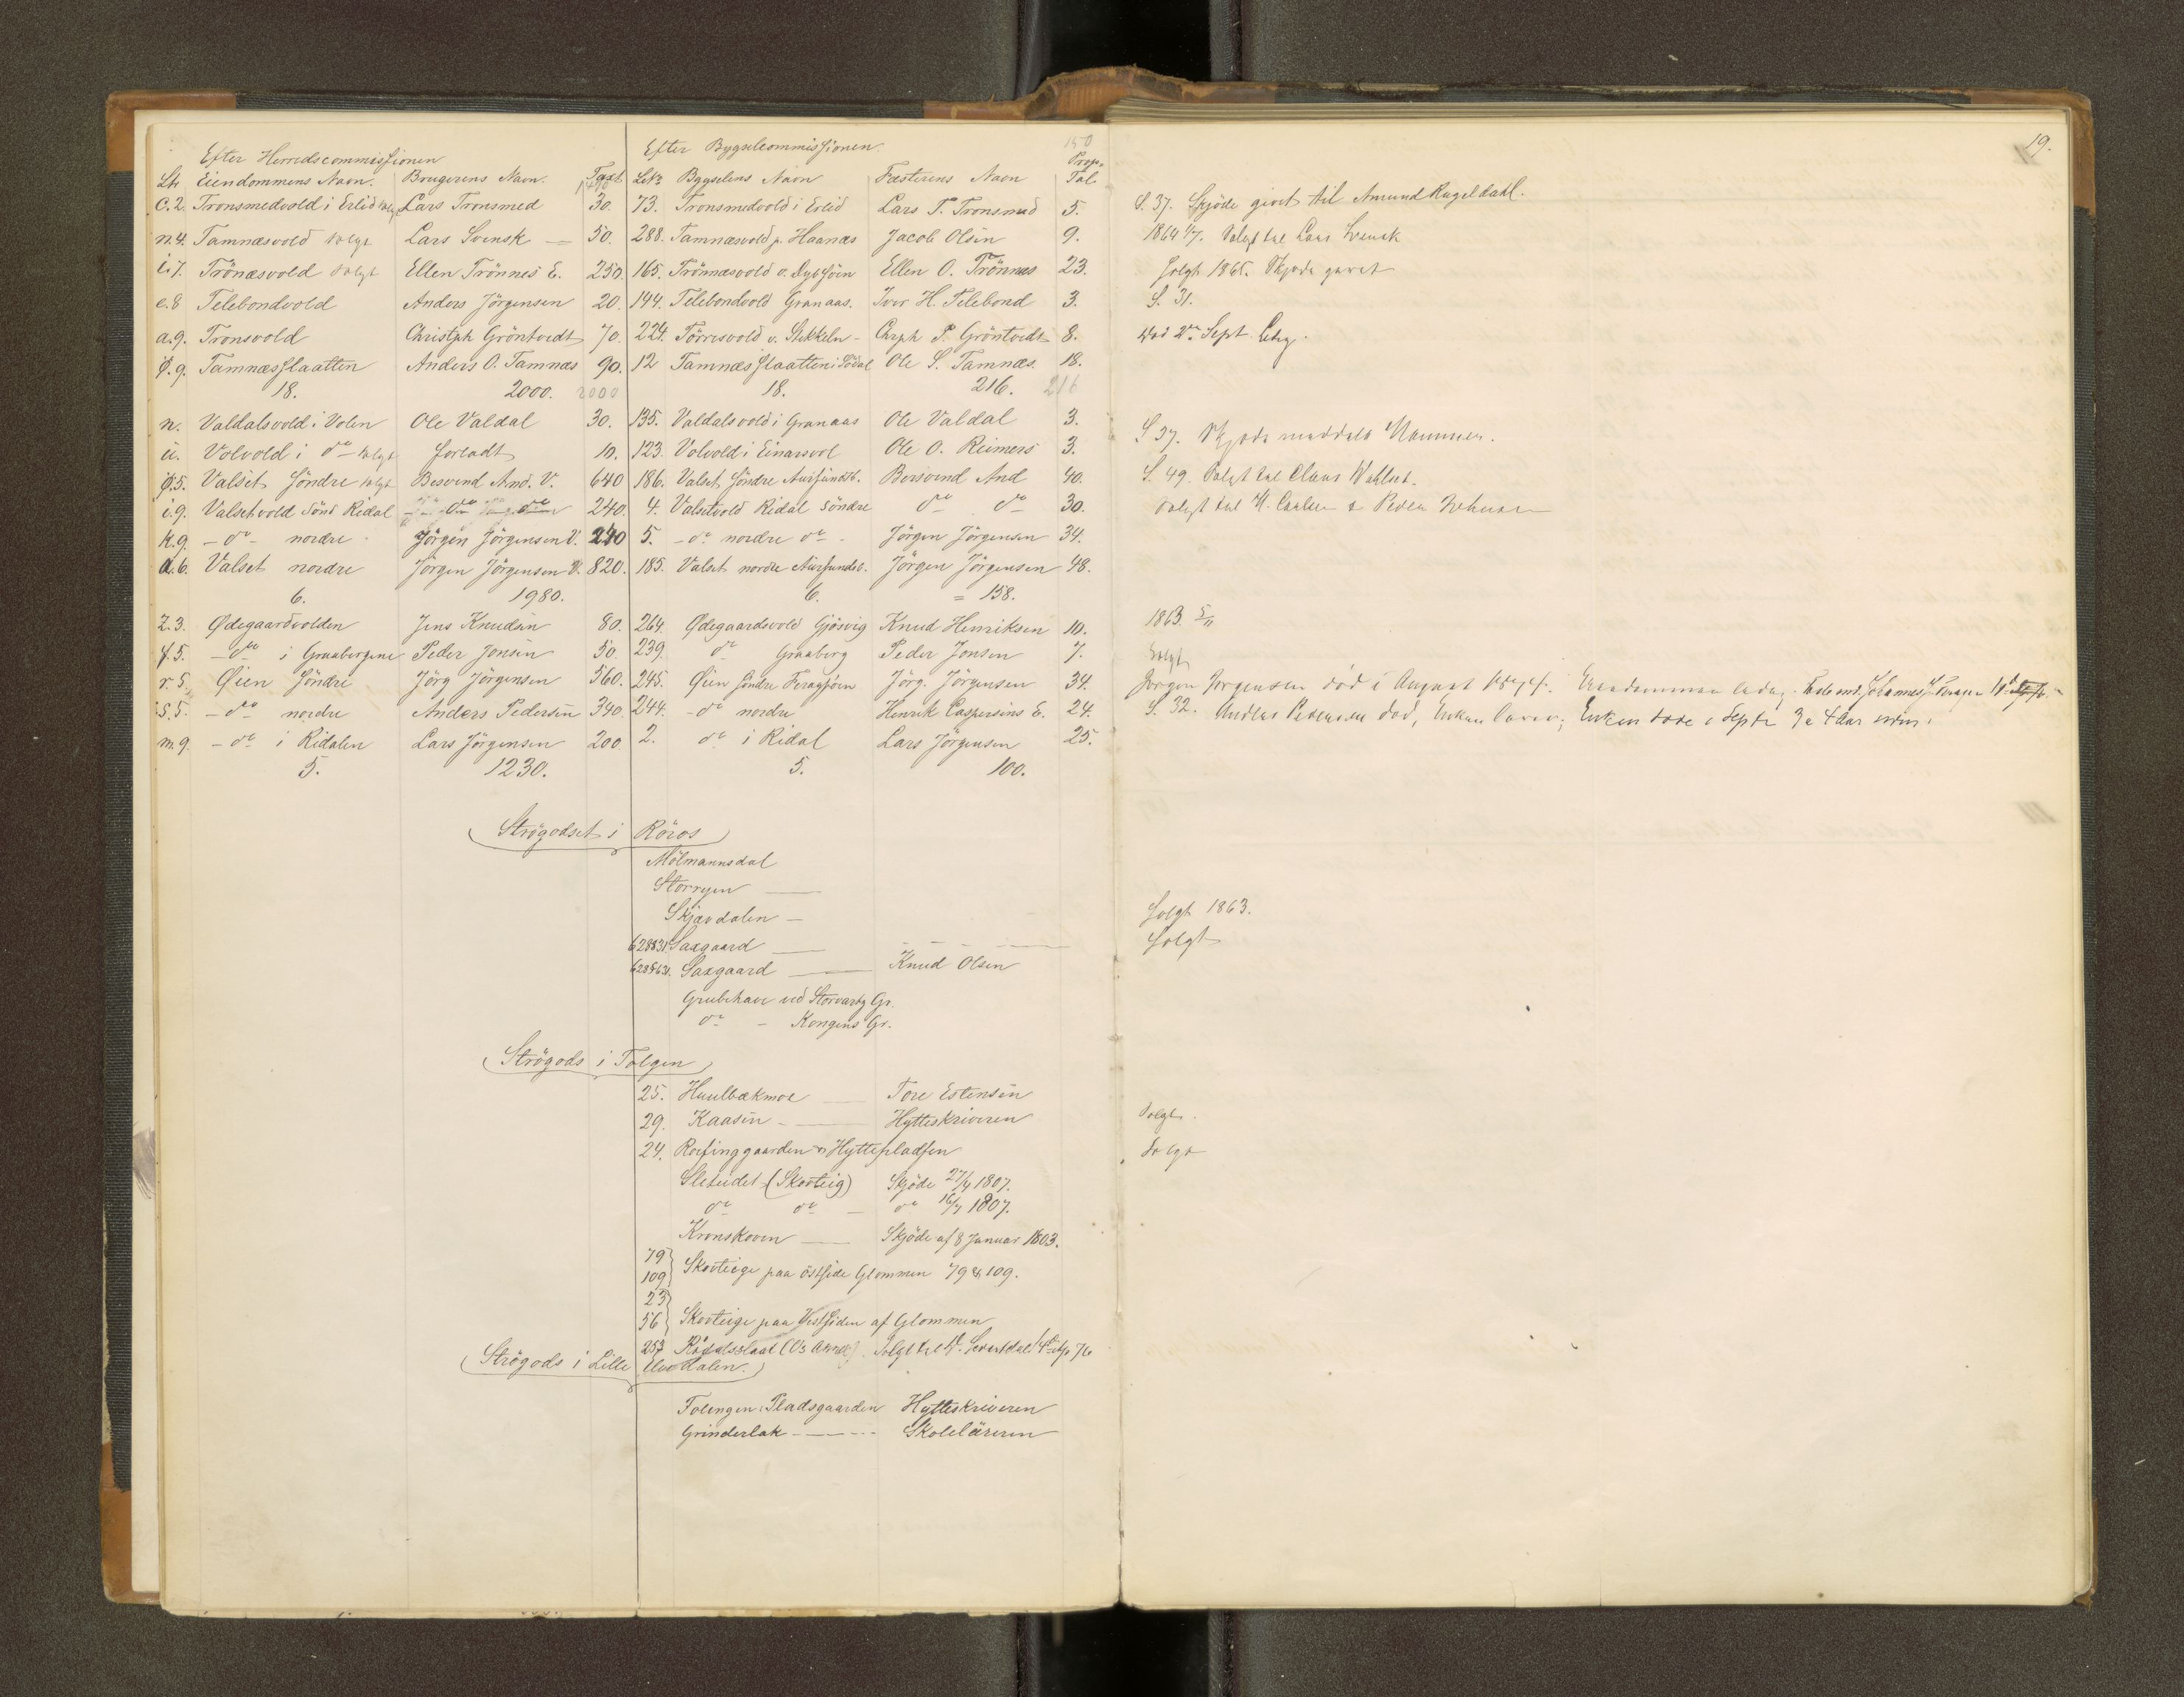 Efter Herredscommissionen Efter Bygselcommissionen. 150
Ltr Eiendommens Navn. Brugerens Navn. Taxt Lb№ Bygselens Navn Fæsterens Navn Prop. Tal.
c.2. Tronsmedvold i Erlid solgt Lars Tronsmed 30. 73. Tronsmedvold i Erlid Lars T. Tronsmed 5.
n.4. Tamnæsvold solgt Lars Svensk — 50. 288. Tamnæsvold p. Haanæs Jacob Olsen 9.
i.7. Trönæsvold solgt Ellen Trönnes E. 250. 165. Trönnæsvold v. Dybsjöen Ellen O. Trönnæs 23.
e.8 Telebondvold Anders Jörgensen 20. 144. Telebondvold Granaas. Iver H. Telebond 3.
a.9. Tronsvold Christph Gröntvedt 70. 224. Törresvold v. Stikkeln- Chrph P. Gröntvedt 8.
p.9. Tamnæsslaatten Anders O. Tamnæs 90. 12 Tamnæsslaatten i Södal Ole S. Tamnæs. 18.
18. 2000. 2000 18. 216. 216
n. Valdalsvold i Volen Ole Valdal 30. 135. Valdalsvold i Granaas Ole Valdal 3.
ü. Volvold i do solgt forladt 10. 123. Volvold i Einarsvol Ole O. Reimers 3.
p.5. Valset Söndre solgt Besvend And. V. 640 186. Valset Söndre Aursundsb. Bersvend And 40.
i.9. Valsetvold Sönd Ridal do do 240. 4. Valsetvold Ridal söndre do do 30.
k.9. - do - nordre Jörgen Jörgensen V. 240 5. - do nordre do - Jörgen Jörgensen 34.
d.6. Valset nordre Jörgen Jörgensen V. 820. 185. Valset nordre Aursundsb. Jörgen Jörgensen 48.
6. 1980. 6. = 158.
z.3. Ødegaardvolden Jens Knudsen 80. 264. Ødegaardsvold Gjösvig Knud Henriksen 10.
f.5. - do i Graabergene Peder Jonsen 50. 239. do Graaberg Peder Jonsen 7.
r.5. Øien Söndre Jörg Jörgensen 560. 245. Øien Söndre Feragsöen Jörg. Jörgensen 34.
s.5. - do nordre Anders Pedersen 340. 244. - do nordre Henrik Caspersens E. 24.
m.9. - do i Ridalen Lars Jörgensen 200. 2. do i Ridal Lars Jörgensen 25.
5. 1230. 5. 100.
Strögodset i Röros
Mölmannsdal
Storryen —
Skjævdalen —
Saxgaard —
Saxgaard — Knud Olsen
Grubehave ved Storvartz Gr.
do - Kongens Gr.
Strögods i Tolgen
25. Huulbækmoe — Tore Estensen
29. Kaasen - — Hytteskriveren
24. Roefinggaarden Hyttepladsen
(Skovteig) Skjöde 27/4 1807.
do do — do 16/7 1807.
Kronskoven — Skjöde af 8 Januar 1803.
79
109 Skovteige paa östside Glommen 79 & 109.
23
56 Skovteige paa Vestsiden af Glommen
257 Solgt til
Strögods i Lille Elvedalen.
Folengen: Pladsgaarden Hytteskriveren
Grinderlak - — - - - Skolelæreren
19.
S. 37. Skjöde givet til Amund Rugeldahl.
1864 1/7. Solgt til Lars Svensk
Solgt 1865. Skjøde givet
S. 31.
S 37. Skjøde meddelt
S. 49. Solgt til Claus Wahlset.
Solgt til
1863 5/11
Solgt
Jørgen Jørgensen död i August
S. 32. Anders Pedersen död, Enken lever; Enken döde i Septr 3 a 4 Aar
Solgt 1863.
Solgt
Solgt.
Solgt